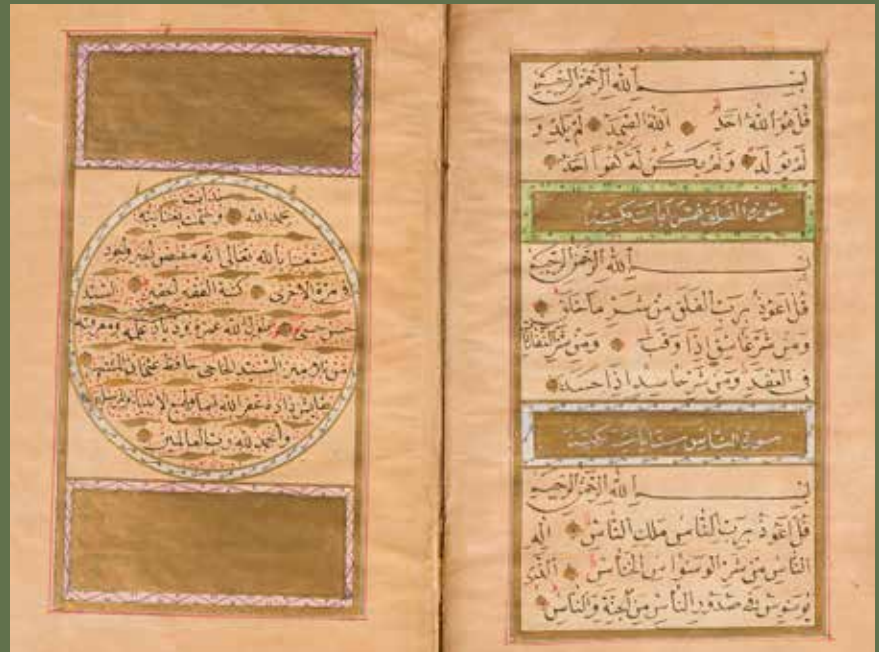 بسم الله الرحمن الرحيم
قل هو الله احد الله الصمد لم يلد و
لم يولد ولم يكن له كفوا احد
سورة الفلق خمس ايات مكية
بسم الله الرحمن الرحيم
قل اعوذ برب الفلق من شر ما خلق
ومن شر غاسق اذا وقب ومن شر النفاثات
في العقد ومن شر حاسد اذا حسد
سورة الناس ست ايات مكية
بسم الله الرحمن الرحيم
قل اعوذ برب الناس ملك الناس اله
الناس من شر الوسواس الخناس الذي
يوسوس في صدور الناس من الجنة والناس
بحمد الله
بالله تعالى انه
كتبه الفقير الحقير السيد
حسن حسنى طول الله عمره وزياد علمه ومعرفته
من تلاميذ السيد الحاجى حافظ عثمان
زاده غفر الله
والحمد لله رب العالمين